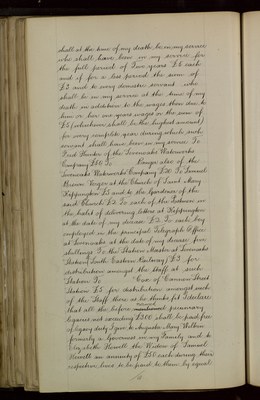 shall at the time of my death be in my service
who shall have been in my service for
the full period of Two years £5 each
and if for a less period the sum of
£3 and to every domestic servant who
shall be in my service at the time of my
death in addition to the wages then due to
him or her one years wages or the sum of
£5 (whichever shall be the highest amount)
for every complete year during which such
servant shall have been in my service To
Fred Thunder of the Sevenoaks Waterworks
Company £50 To Range also of the
Sevenoaks Waterworks Company £20 To Samuel
Brown Verger at the Church of Saint Mary
Kippington £5 and to the Gardener of the
said Church £3 To each of the Postmen in
the habit of delivering letters at Kippington
at the date of my decease £3 To each boy
employed in the principal Telegraph Office
at Sevenoaks at the date of my decease five
shillings To the Station Master at Sevenoaks
Station (South Eastern Railway) £5 for
distribution amongst the Staff at such
Station To of Cannon Street
Station £5 for distribution amongst such
of the Staff there as he thinks fit I declare
that all the before pecuniary
legacies not exceeding £200 shall be paid free
of legacy duty I give to Augusta Mary
formerly a Governess in my Family and to
Elizabeth Howell the Widow of Samuel
Howell an annuity of £50 each during their
respective lives to be paid to them by equal